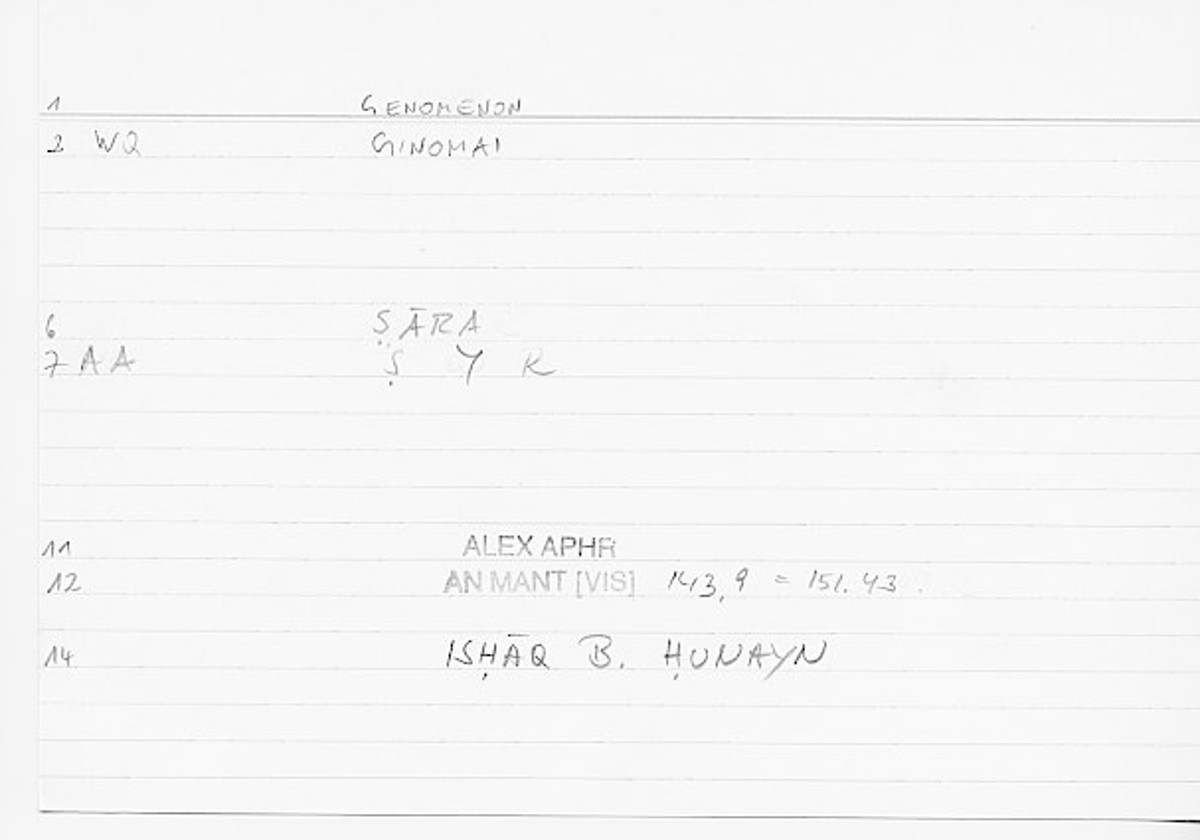 1 GENOMENON
2 WQ GINOMAI
6 ṢĀRA
7 AA Ṣ Y R
11 ALEX APHR
12 AN MANT [VIS] 143,9 = 151.43.
14 ISḤĀQ B. ḤUNAYN